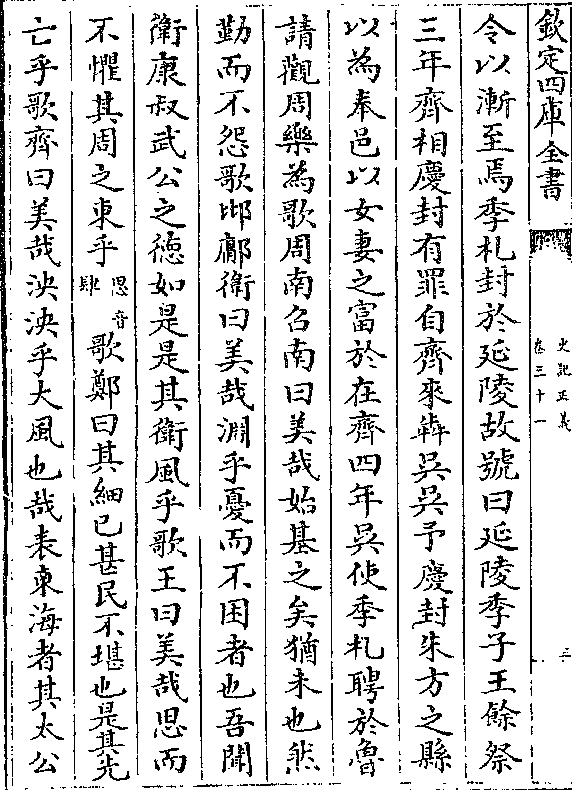 欽定四庫全書
史記正義
卷三十一
三
令以漸至焉季札封於延陵故號曰延陵季子王餘祭
三年齊相慶封有罪自齊來犇吳吳予慶封朱方之縣
以為奉邑以女妻之富於在齊四年吳使季札聘於魯
請觀周樂為歌周南召南曰美哉始基之矣猶未也然
勤而不怨歌邶鄘衛曰美哉淵乎憂而不困者也吾聞
衛康叔武公之德如是是其衛風乎歌王曰美哉思而
不懼其周之東乎思音肆歌鄭曰其細已甚民不堪也是其先
亡乎歌齊曰美哉泱泱乎大風也哉表東海者其太公